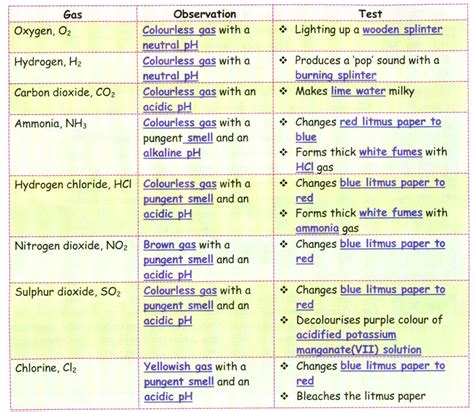 Gas Observation Test
Oxygen, O₂ Colourless gas with a ❖ Lighting up a wooden splinter
neutral pH
Hydrogen, H₂ Colourless gas with a ❖ Produces a 'pop' sound with a
neutral pH burning splinter
Carbon dioxide, CO₂ Colourless gas with an ❖ Makes lime water milky
acidic pH
Ammonia, NH₃ Colourless gas with a ❖ Changes red litmus paper to
pungent smell and an blue
alkaline pH ❖ Forms thick white fumes with
HCl gas
Hydrogen chloride, HCl Colourless gas with a ❖ Changes blue litmus paper to
pungent smell and an red
acidic pH ❖ Forms thick white fumes with
ammonia gas
Nitrogen dioxide, NO₂ Brown gas with a ❖ Changes blue litmus paper to
pungent smell and an red
acidic pH
Sulphur dioxide, SO₂ Colourless gas with a ❖ Changes blue litmus paper to
pungent smell and an red
acidic pH ❖ Decolourises purple colour of
acidified potassium
manganate(VII) solution
Chlorine, Cl₂ Yellowish gas with a ❖ Changes blue litmus paper to
pungent smell and an red
acidic pH ❖ Bleaches the litmus paper